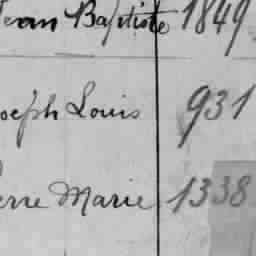 Jean Baptiste 1849
Joseph Louis 931
Pierre Marie 1338